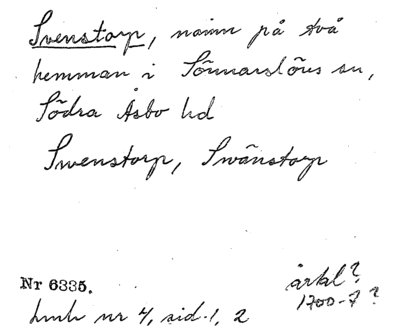 Svenstorp, namn på två
hemman i Sönnarslövs sn,
Södra Åsbo hd
Swenstorp, Swänstorp
Nr 6335.
årtal?
1700-?
nr 4, sid. 1, 2